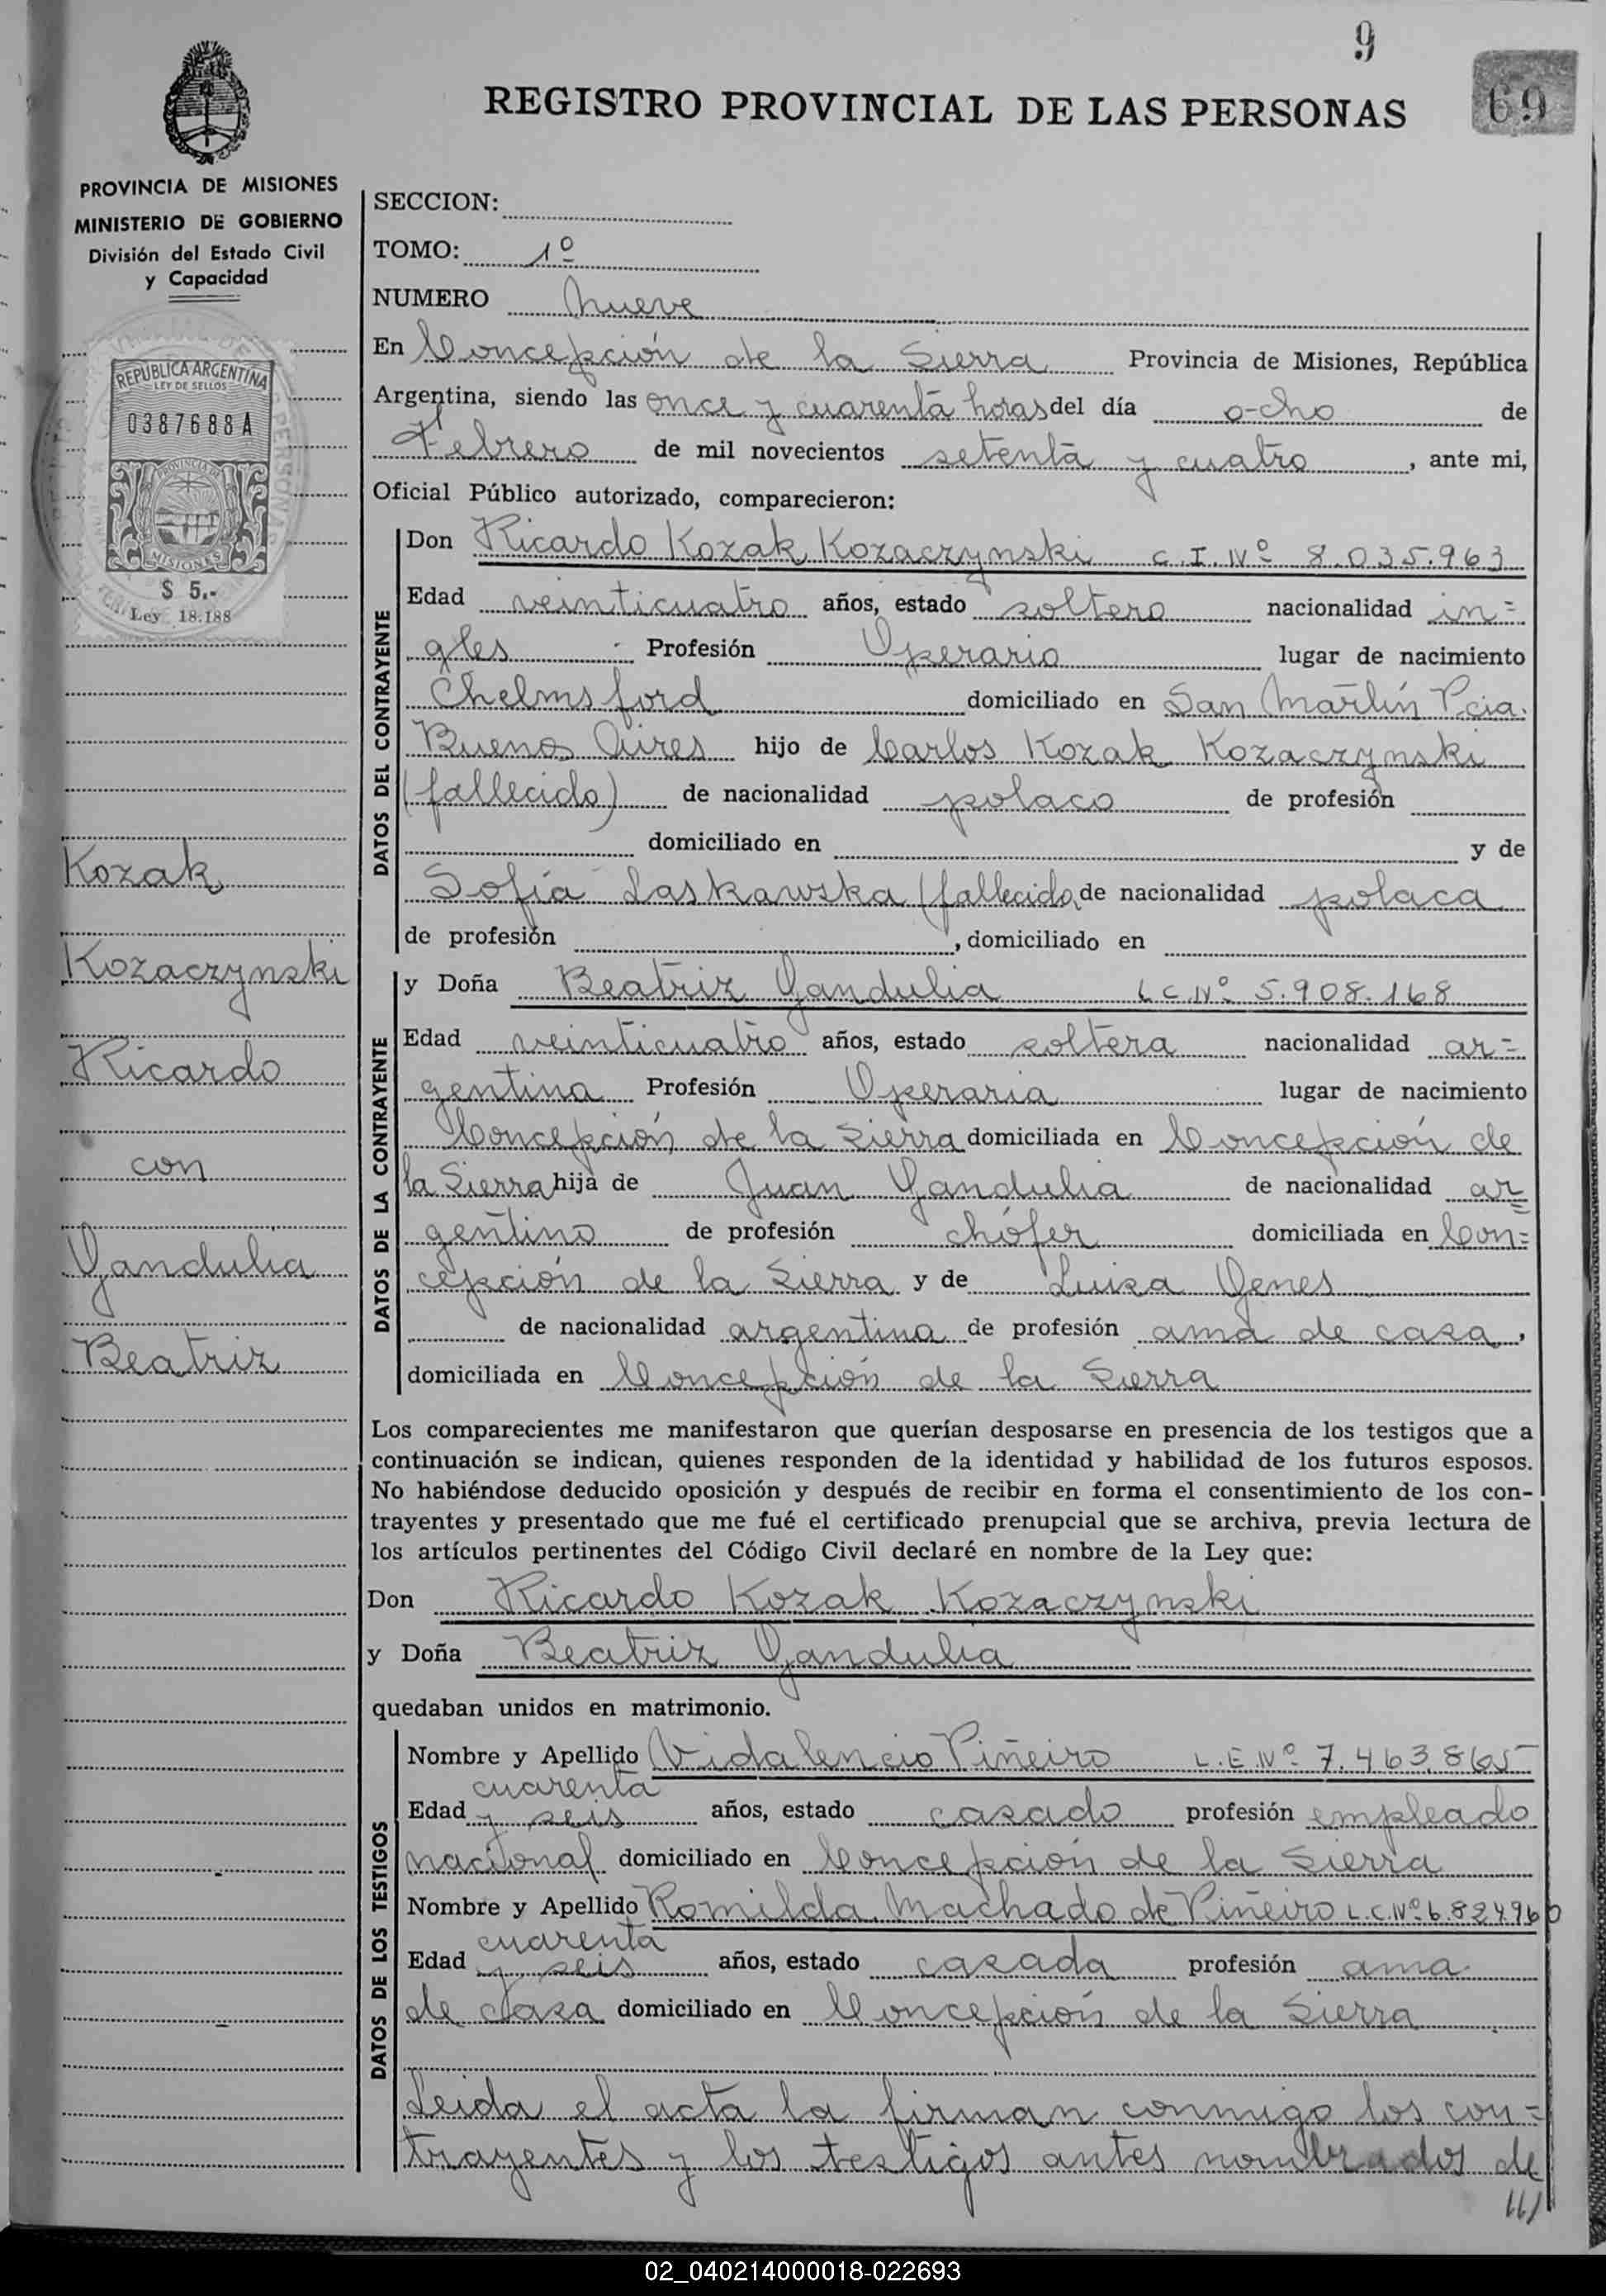 9
69
REGISTRO PROVINCIAL DE LAS PERSONAS
PROVINCIA DE MISIONES
MINISTERIO DE GOBIERNO
División del Estado Civil
y Capacidad
REPUBLICA ARGENTINA
LEY DE SELLOS
0387688A
PROVINCIA DE
MISIONES
$ 5.-
Ley 18.188
Kozak
Kozaczynski
Ricardo
con
Gandulia
Beatriz
SECCION:
TOMO: 1º
NUMERO nueve
En Concepción de la Sierra Provincia de Misiones, República
Argentina, siendo las once y cuarenta horas del día ocho de
Febrero de mil novecientos setenta y cuatro, ante mi,
Oficial Público autorizado, comparecieron:
DATOS DEL CONTRAYENTE
Don Ricardo Kozak Kozaczynski C.I. Nº 8.035.963
Edad veinticuatro años, estado soltero nacionalidad in=
gles Profesión Operario lugar de nacimiento
Chelmsford domiciliado en San Martín Pcia.
Buenos Aires hijo de Carlos Kozak Kozaczynski
(fallecido) de nacionalidad polaco de profesión
domiciliado en y de
Sofía Laskawska (fallecida de nacionalidad polaca
de profesión , domiciliado en
DATOS DE LA CONTRAYENTE
y Doña Beatriz Gandulia L C. Nº 5.908.168
Edad veinticuatro años, estado soltera nacionalidad ar=
gentina Profesión Operaria lugar de nacimiento
Concepción de la Sierra domiciliada en Concepción de
la Sierra hija de Juan Gandulia de nacionalidad ar=
gentino de profesión chófer domiciliada en Con=
cepción de la Sierra y de Luisa Genes
de nacionalidad argentina de profesión ama de casa,
domiciliada en Concepción de la Sierra
Los comparecientes me manifestaron que querían desposarse en presencia de los testigos que a
continuación se indican, quienes responden de la identidad y habilidad de los futuros esposos.
No habiéndose deducido oposición y después de recibir en forma el consentimiento de los con-
trayentes y presentado que me fué el certificado prenupcial que se archiva, previa lectura de
los artículos pertinentes del Código Civil declaré en nombre de la Ley que:
Don Ricardo Kozak Kozaczynski
y Doña Beatriz Gandulia
quedaban unidos en matrimonio.
DATOS DE LOS TESTIGOS
Nombre y Apellido Vidalencio Piñeiro L.E. Nº 7.463.865
cuarenta
Edad y seis años, estado casado profesión empleado
nacional domiciliado en Concepción de la Sierra
Nombre y Apellido Romilda Machado de Piñeiro L.C. Nº 6.824.960
cuarenta
Edad y seis años, estado casada profesión ama
de casa domiciliado en Concepción de la Sierra
Leida el acta la firman conmigo los con=
trayentes y los testigos antes nombrados de
///
02_040214000018-022693